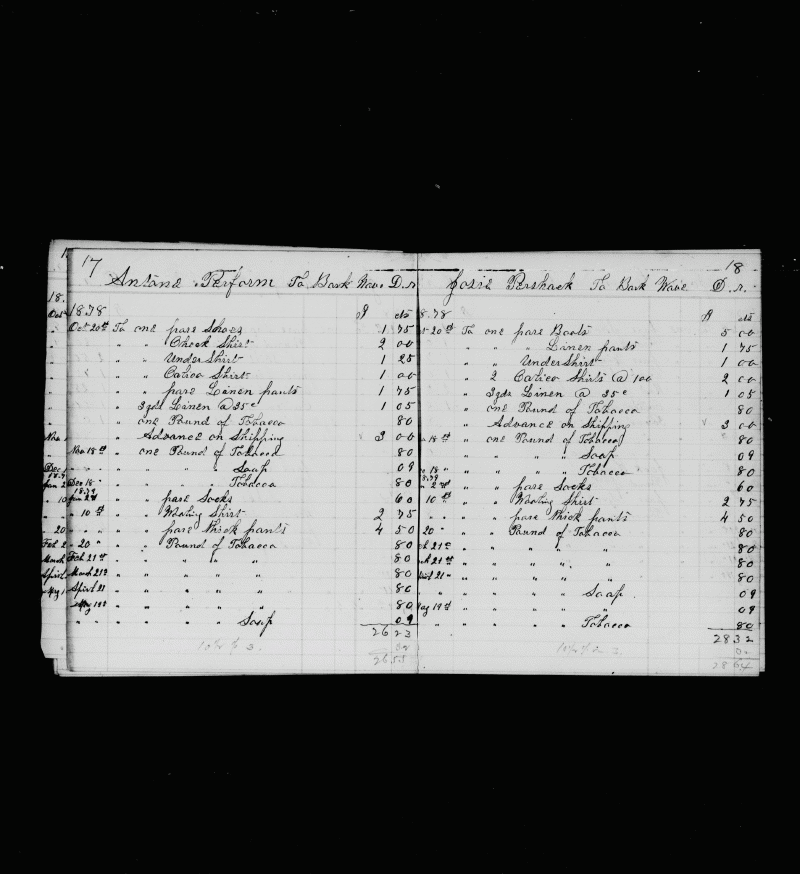 17
Antone Perform To Bark Wave D.r.
1878
$ cts
Oct 20th To one pare Shoes 1 75
" " Check Shirt 2 00
" " UnderShirt 1 25
" " Calico Shirt 1 00
" " pare Linen pants 1 75
" 3yds Linen @ 35c 1 05
" one Pound of Tobacco 80
" Advance on Shipping 3 00
Nov 18th " one Pound of Tobacco 80
" " " " " Soap 09
Dec 18 " " " " " Tobacco 80
1879
Jan 2nd " " pare Socks 60
" 10th " " Wooling Shirt 2 75
" " " " pare thick pants 4 50
" 20 " " " Pound of Tobacco 80
Feb 21st " " " " " 80
March 21st " " " " " 80
Apirl 21 " " " " " 80
May 19th " " " " " 80
" " " " " " Soap 09
26 23
26 55
18
Josie Pershack To Bark Wave D.r.
18.78
$ cts
20th To one pare Boots 5 00
" " Linen pants 1 75
" " UnderShirt 1 00
" 2 Calico Shirts @ 100 2 00
" 3yds Linen @ 35c 1 05
" one Pound of Tobacco 80
" Advance on Shipping 3 00
18th " one Pound of Tobacco 80
" " " " " Soap 09
18 " " " " " Tobacco 80
1879
2nd " " pare Socks 60
10th " " Wooling Shirt 2 75
" " " " pare thick pants 4 50
20 " " " Pound of Tobacco 80
21st " " " " " 80
21st " " " " " 80
21 " " " " " 80
" " " " " Soap 09
May 19th " " " " " 09
" " " " " Tobacco 80
28 32
28 64